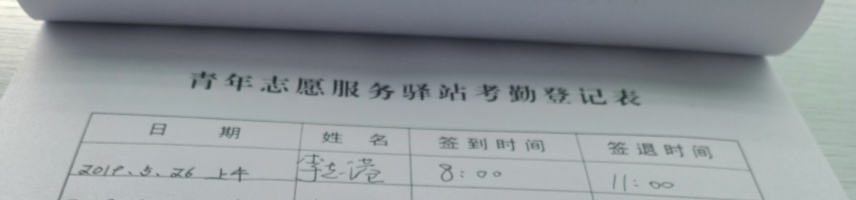 青年志愿服务驿站考勤登记表
日 期 姓 名 签到时间 签退时间
2019.5.26 上午 李志港 8:00 11:00